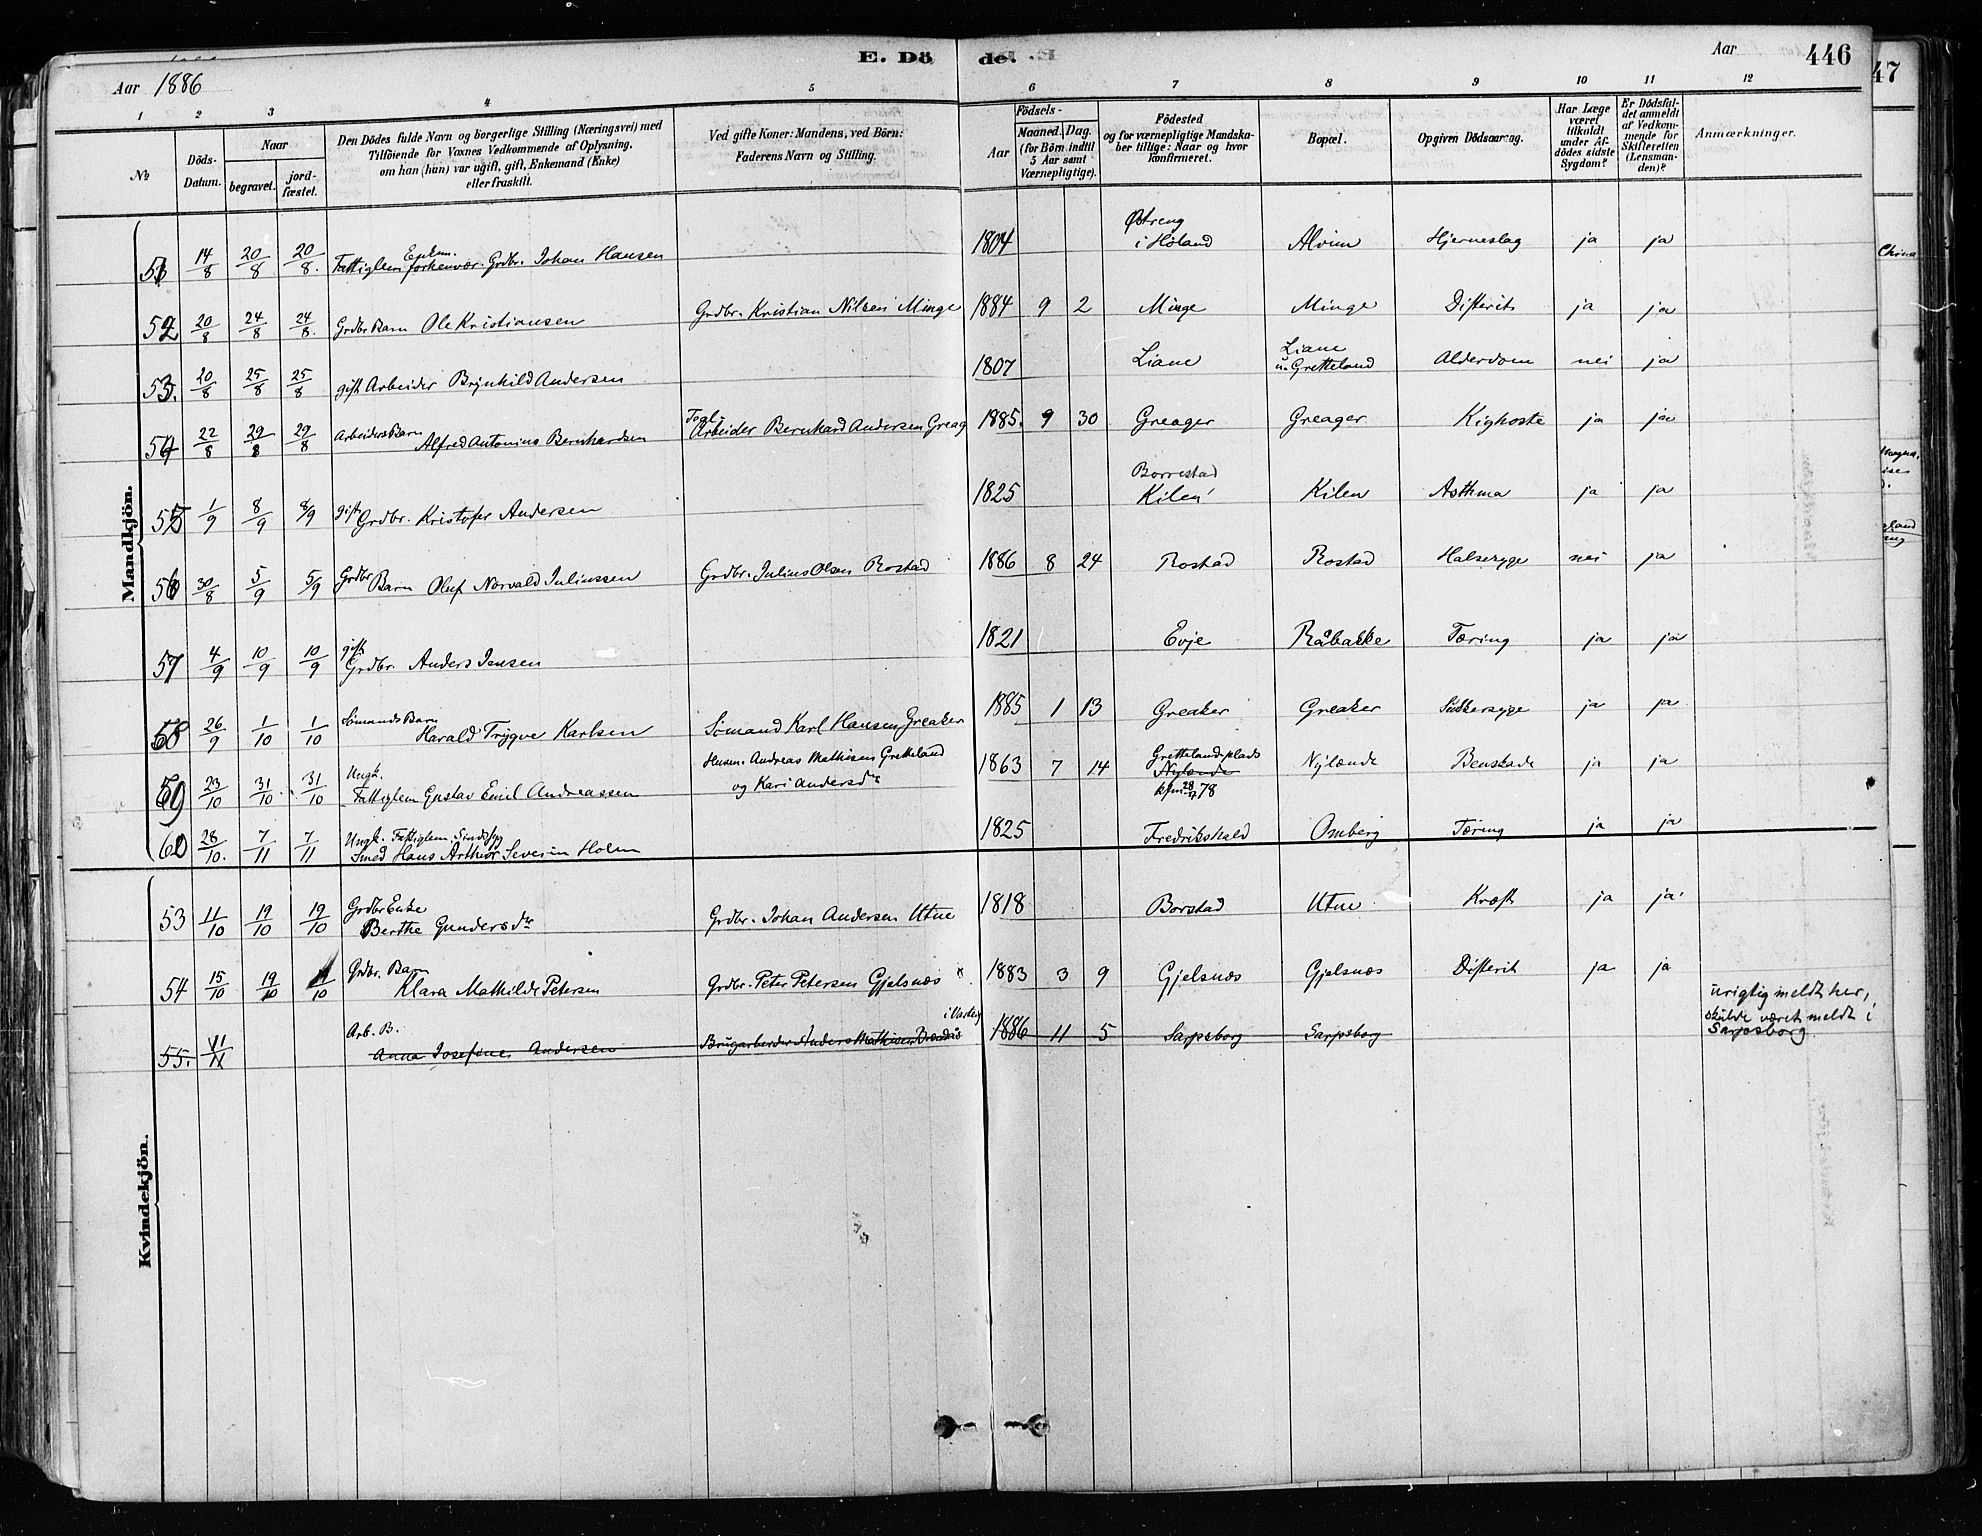 E. Döde.
Aar 1886
Aar
446
47
1 2 3 4 5 6 7 8 9 10 11 12
№
Döds-Datum.
Naar
begravet.
jordfæstet.
Den Dödes fulde Navn og borgerlige Stilling (Næringsvei) med
Tilföiende for Voxnes Vedkommende af Oplysning,
om han (hun) var ugift, gift, Enkemand (Enke)
eller fraskilt.
Ved gifte Koner: Mandens, ved Börn:
Faderens Navn og Stilling.
Födsels-
Aar
Maaned. Dag.
(for Börn indtil
5 Aar samt
Værnepligtige).
Födested
og for værnepligtige Mandskaber tillige: Naar og hvor
konfirmeret.
Bopæl.
Opgiven Dödsaarsag.
Har Læge
været
tilkaldt
under Afdödes sidste
Sygdom?
Er Dödsfaldet anmeldt
af Vedkommende for
Skifteretten
(Lensmanden)?
Anmærkninger.
Mandkjön.
51 14/8 20/8 20/8. Enkem. Fattiglem forhenvær. Grdbr. Johan Hansen 1804 Østreng i Höland Alvim Hjerneslag ja ja
52 20/8 24/8 24/8. Grdbr Barn Ole Kristiansen Grdbr. Kristian Nilsen Minge 1884 9 2 Minge Minge Difterit ja ja
53. 20/8 25/8 25/8 gift Arbeider Brynhild Andersen 1807 Liane Liane u. Gretteland Alderdom nei ja
54 22/8 29/8 29/8 Arbeiders Barn Alfred Antonius Bernhardsen Arbeider Bernhard Andersen Greag 1885. 9 30 Greager Greager Kighoste ja ja
55 1/9 8/9 8/9 gift Grdbr. Kristofer Andersen 1825 Borrestad Kilen Kilen Asthma ja ja
56 30/8 5/9 5/9 Grdbr Barn Oluf Norvald Juliussen Grdbr. Julius Olsen Rostad 1886 8 24 Rostad Rostad Halsesyge nei ja
57 4/9 10/9 10/9 gift Grdbr. Anders Jensen 1821 Evje Råbakke Tæring ja ja
58 26/9 1/10 1/10 Sömands Barn Harald Trygve Karlsen Sömand Karl Hansen Greaker 1885 1 13 Greaker Greaker Sukkersyge ja ja
59 23/10 31/10. 31/10 Ungk. Fattiglem Gustav Emil Andreassen Husm. Andreas Mathisen Gretteland og Kari Andersdr 1863 7 14 Grettelandsplads Nylænde kfm 78 Nylænde Benskade ja ja
60 28/10. 7/11 7/11 Ungk. Fattiglem Sindssyg Smed Hans Arthur Severin Holm 1825 Fredrikshald Omberg Tæring ja ja
Kvindekjön.
53 11/10 19/10 19/10 Grdbr Enke Berthe Gundersdr Grdbr. Johan Andersen Utne 1818 Borstad Utne Kræft ja ja
54 15/10 19/10 19/10 Grdbr. Barn Klara Mathilde Petersen Grdbr. Peter Petersen Gjelsnæs 1883 3 9 Gjelsnæs Gjelsnæs Difterit ja ja
55. 11/11 Arb. B. Anna Josefine Andersen Brugarbeider Anders Mathisen i Varteig 1886 11 5 Sarpsborg Sarpsborg urigtig meldt her,
skulde været meldt i
Sarpsborg